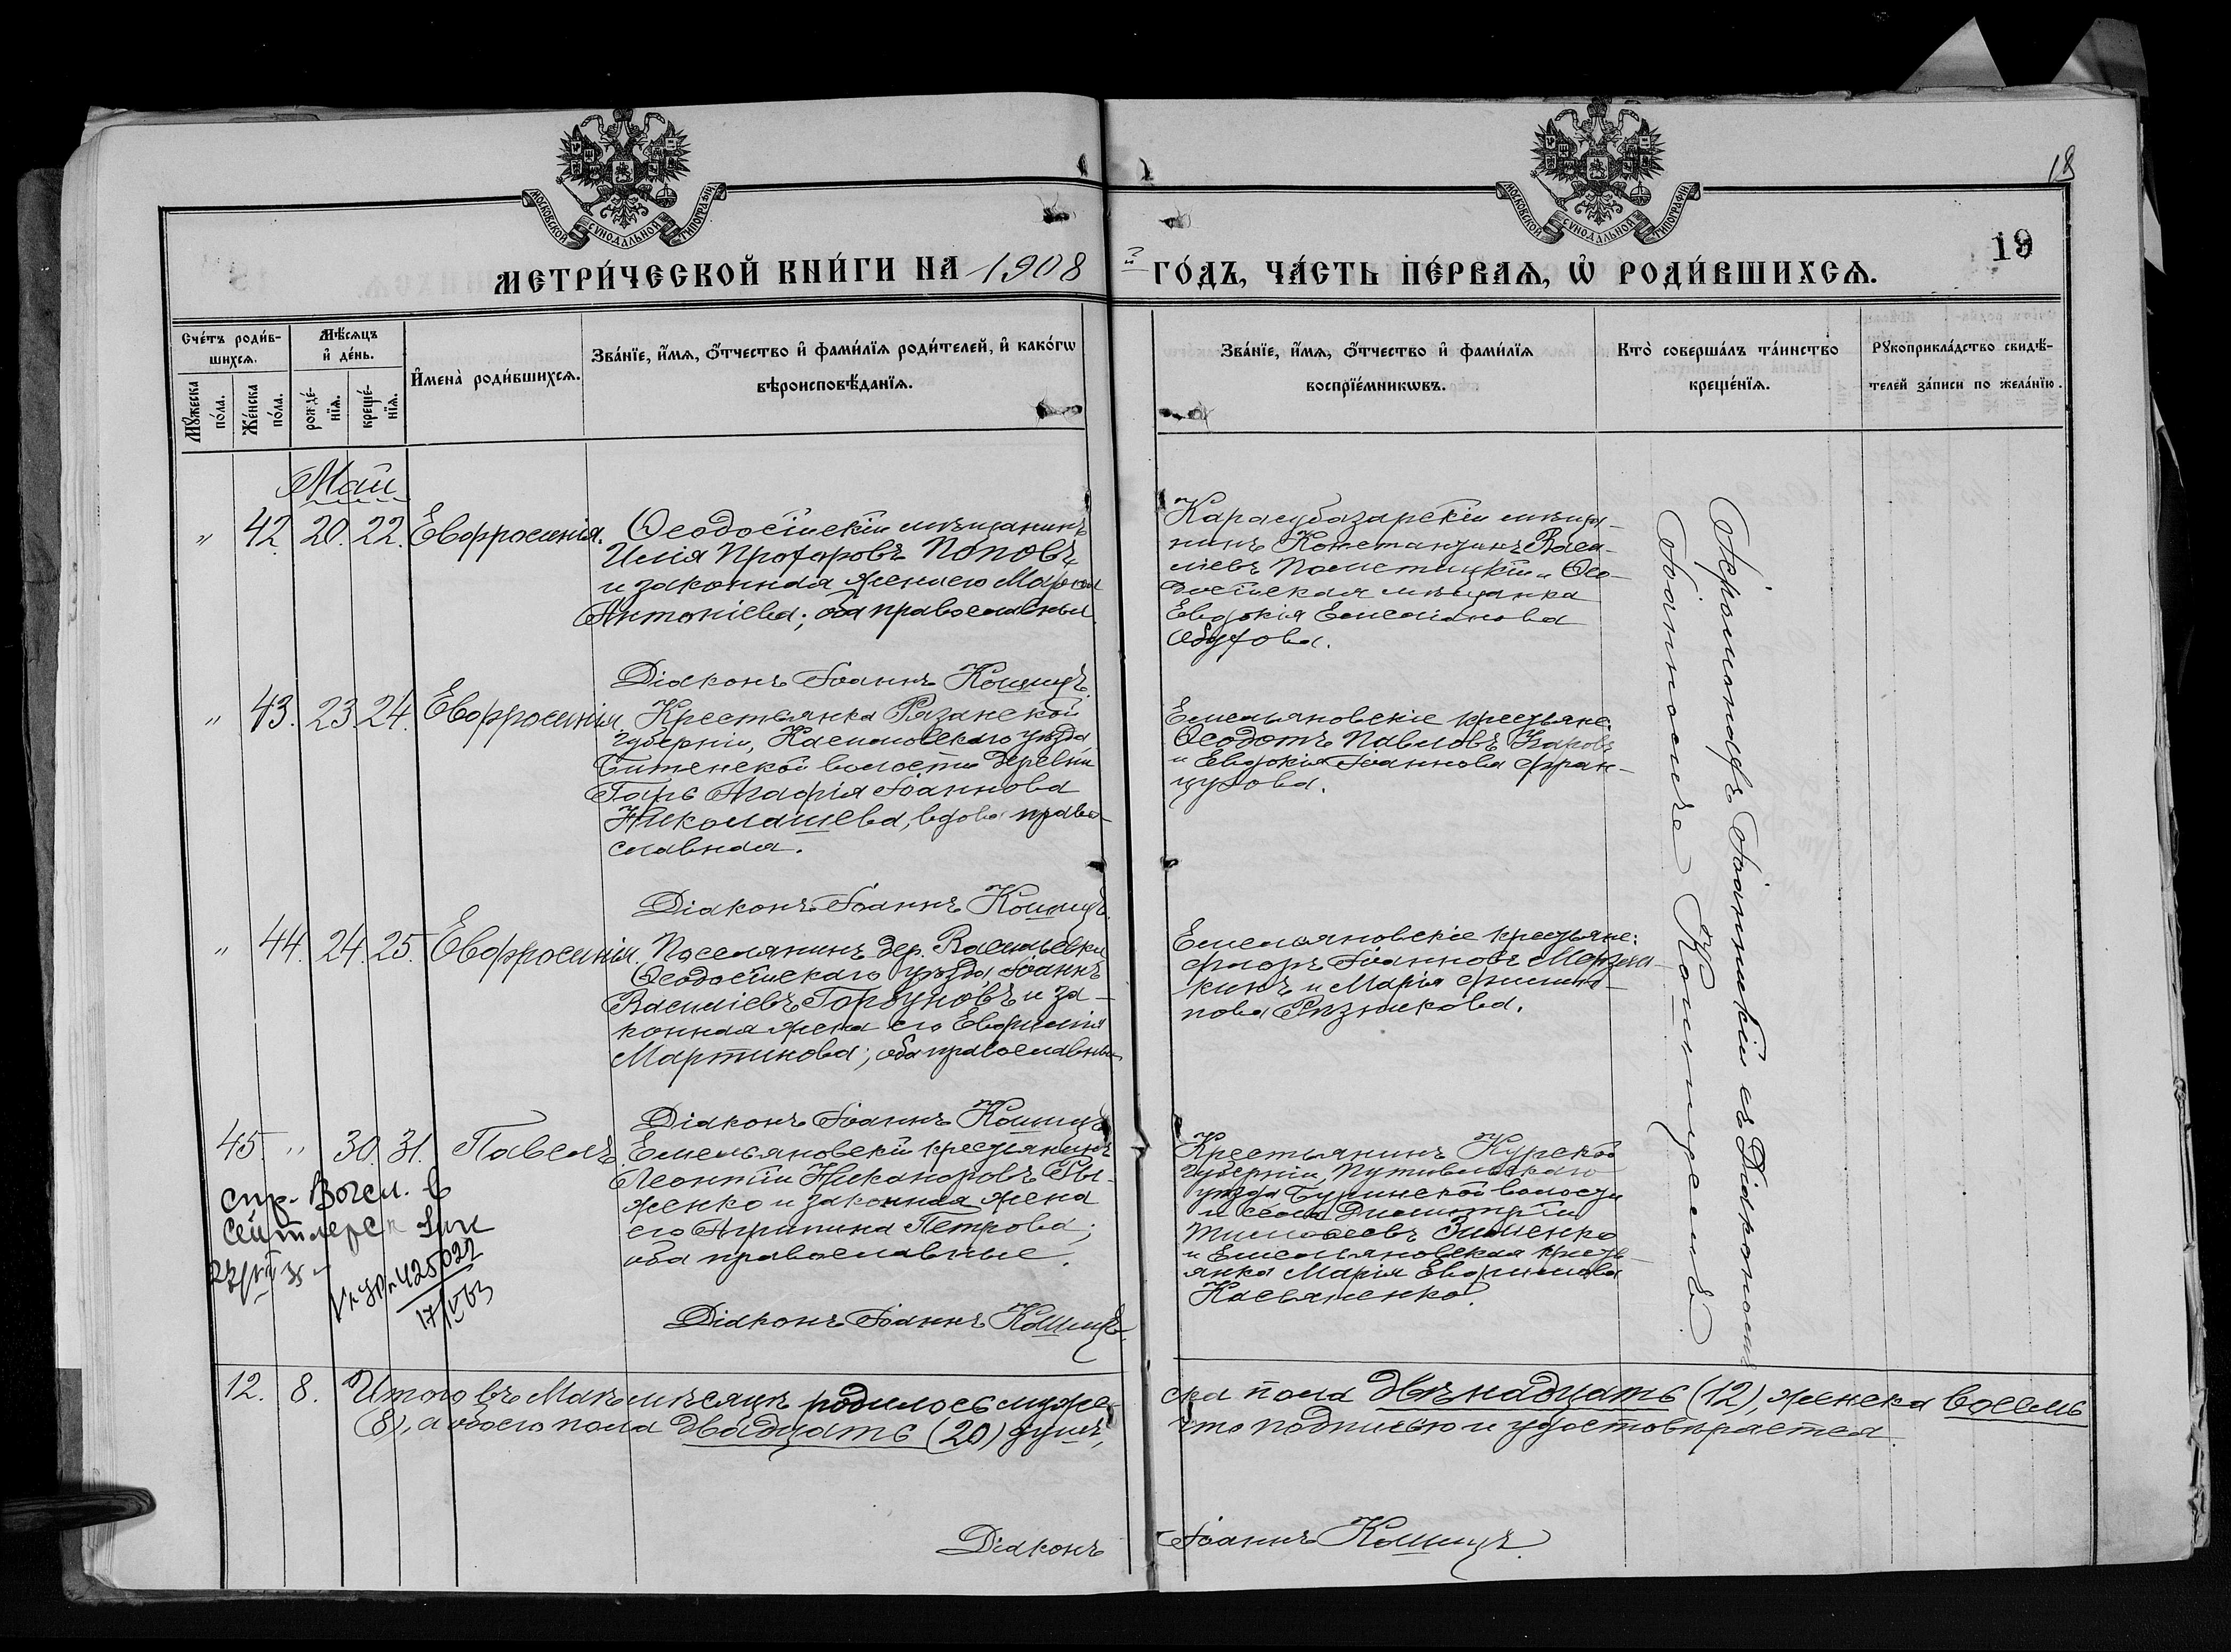 МОСКОВСКОЙ СѴНОДАЛЬНОЙ ТИПОГРАФІИ
МОСКОВСКОЙ СѴНОДАЛЬНОЙ ТИПОГРАФІИ
18
19
МЕТРИ́ЧЕСКОЙ КНИ́ГИ НА 1908 й ГО́ДЪ, ЧА́СТЬ ПЕ́РВАѦ, Ѡ҆ РОДИ́ВШИХСѦ.
Сче́тъ роди́в-
шихсѧ.
Мꙋ́жеска
по́ла.
Же́нска
по́ла.
Мѣ́сѧцъ
и҆ де́нь.
рожде́-
нїѧ.
креще́-
нїѧ.
И҆мена̀ роди́вшихсѧ.
Зва́нїе, и҆́мѧ, ѻ҆́тчество и҆ фами́лїѧ роди́телей, и҆ како́гѡ
вѣроисповѣ́данїѧ.
Зва́нїе, и҆́мѧ, ѻ҆́тчество и҆ фами́лїѧ
воспрїе́мникѡвъ.
Кто̀ соверша́лъ та́инство
креще́нїѧ.
Рꙋкоприкла́дство свидѣ́-
телей за́писи по жела́нїю.
Май
" 42. 20. 22. Евфросинія.
Ѳеодосійскій мѣщанинъ
Илія Прохоровъ Поповъ
и законная жена его Марѳа
Антоніева; оба православные
Діаконъ Іоаннъ Кошицъ.
Карасубазарскій мѣща-
нинъ Константинъ Васи-
ліевъ и Ѳео-
досійская мѣщанка
Евдокія Емеліанова
" 43. 23. 24. Евфросинія
Крестьянка Рязанской
губерніи, Касимовскаго уѣзда
волости деревни
Гарь Агафія Іоаннова
Николашева, вдова право-
славная.
Діаконъ Іоаннъ Кошицъ.
Емельяновскіе крестьяне:
Ѳеодотъ Павловъ
и Евдокія Іоаннова Фран-
цузова.
" 44. 24. 25. Евфросинія.
Поселянинъ дер. Васильевки
Ѳеодосійскаго уѣзда, Іоаннъ
Василіевъ Горбуновъ и за-
конная жена его Евфимія
Мартинова; оба православные
Діаконъ Іоаннъ Кошицъ
Емельяновскіе крестьяне:
Флоръ Іоанновъ
и Марія Филип-
пова Рязникова.
45. " 30. 31. Павелъ.
Емельяновскій крестьянинъ
Леонтій Никаноровъ Ры-
женко и законная жена
его Агрипина Петрова;
оба православные.
Діаконъ Іоаннъ Кошицъ.
Крестьянинъ Курской
губерніи, Путивльскаго
уѣзда Бурынской волости
и села Димитрій
Тимоѳеевъ Зименко
и Емельяновская кресть-
янка Марія Евфимова
Касьяненко.
№ 425022
Іеромонахъ Іоанникій съ Діакономъ
Іоанномъ Кошицемъ.
12. 8. Итого въ Маѣ мѣсяцѣ родилось муже-
ска пола двѣнадцать (12), женска восемь
(8), а обоего пола двадцать (20) душъ,
что подписью и удостовѣряется.
Діаконъ Іоаннъ Кошицъ.